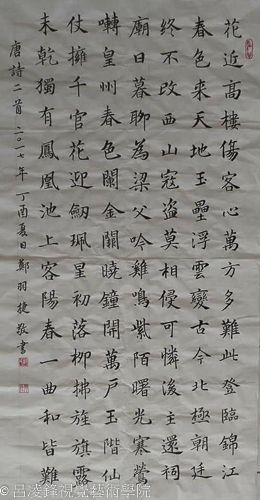 花近高樓傷客心萬方多難此登臨錦江
春色來天地玉壘浮雲變古今北極朝廷
終不改西山寇盜莫相侵可憐後主還祠
廟日暮聊為梁父吟雞鳴紫陌曙光寒鶯
囀皇州春色闌金闕曉鐘開萬戶玉階仙
仗擁千官花迎劒珮星初落柳拂旌旗露
未乾獨有鳳凰池上客陽春一曲和皆難
唐詩二首 二〇一七年 丁酉夏日鄭羽捷敬書
©呂凌鋒視覺藝術學院